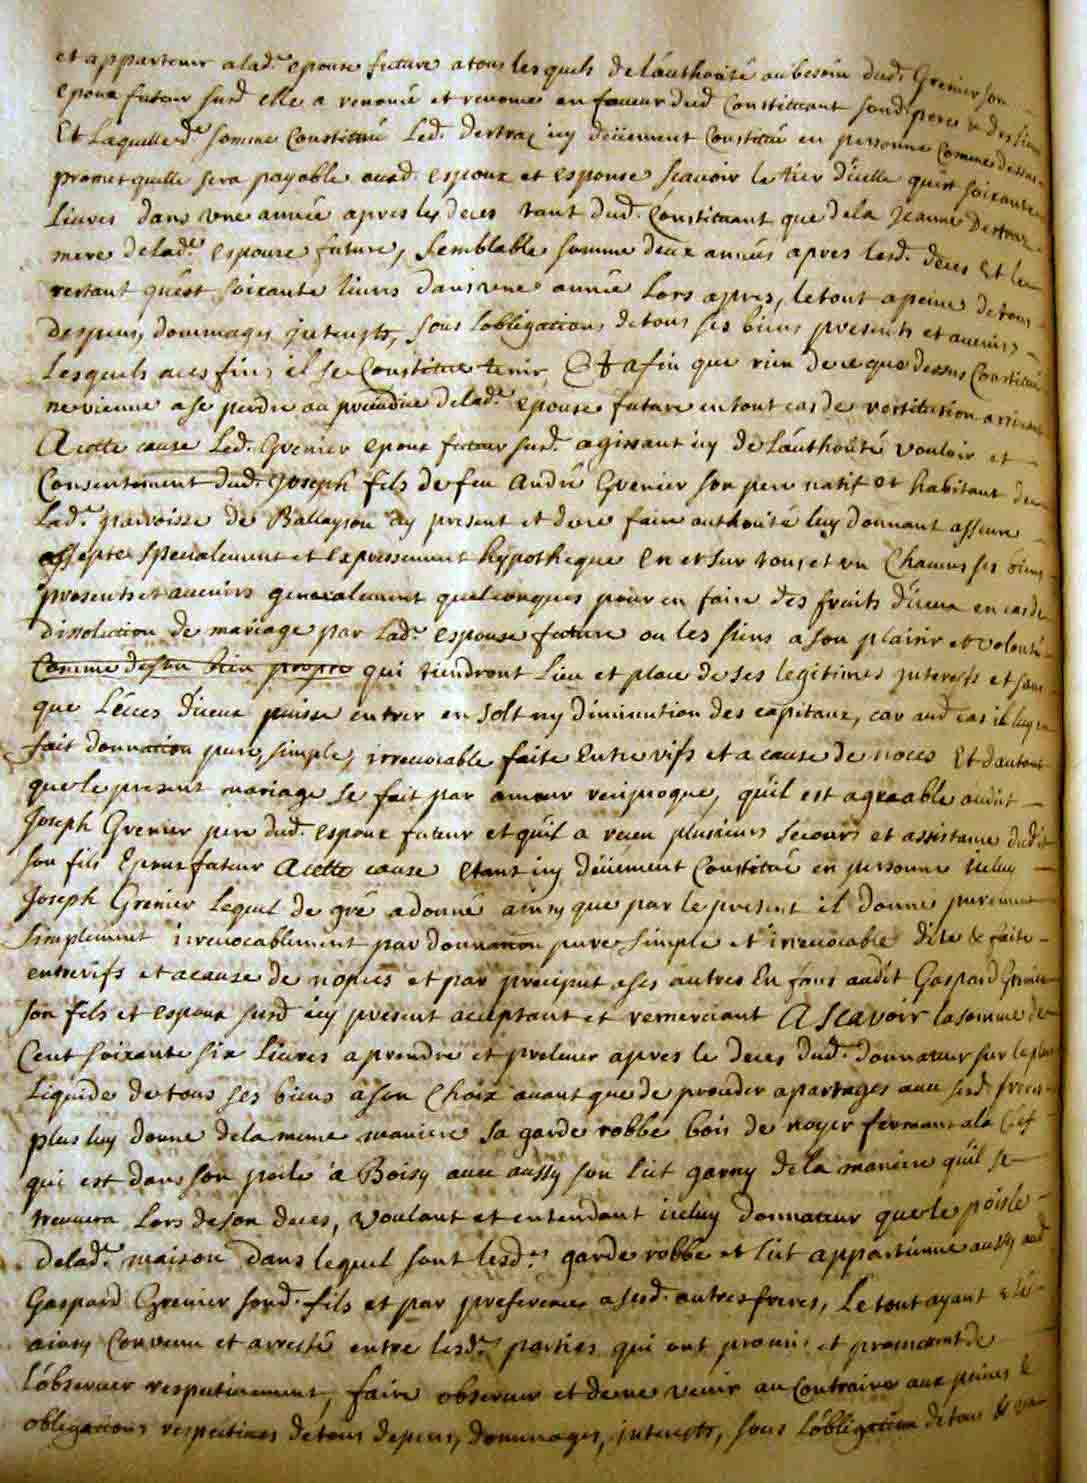 et appartenir a lad.e epouse future a tous lesquels de l'authorité au besoin dud. Grenier son
epoux futeur susd elle a renoncé et renonce en faveur dud Constituant sond pere & des siens
Et Laquelle de somme Constitué Led. Dertraz icy deüement Constitué en personne Comme dessus
promet quelle sera payable ausd. espoux et espouse scavoir le tier d'icelle qu'est soixante
Liures dans vne année apres les deces tant dud. Constituant que de la Jeanne Dertraz
mere de lad.e espouse future, semblable somme deux années apres lesd. deces et le
restant qu'est soixante liures dans vne année Lors apres, le tout a peine de tous
despens, dommages interests, sous l'obligations de tous ses biens presents et avenirs
Lesquels a ces fins il se Constitue tenir, Et afin que rien de ce que dessus Constitué
ne vienne a se perdre au prejudice de lad.e epouse future en tout cas de restitution arrivant
A cette cause Led. Grenier epoux futeur susd. agissant icy de l'authorité vouloir et
Consentement dud. Joseph fils de feu André Grenier son pere natif et habitant de
Lad.e parroisse de Ballayson icy present et de ce faire authorité luy donnant asseure
assepte specialement et expressement hypotheque en et sur tous et vn Chacuns ses biens
presents et avenirs generalement quelconques pour en faire des fruits d'iceux en cas de
dissolution de mariage par Lad.e espouse future ou les siens a son plaisir et volonté
Comme de son bien propre qui tiendront Lieu et place de ses legitimes interests et sans
que L'exces d'iceux puisse entrer en solt ny diminution des capitaux, car aud cas il luy en
fait donnation pure, simple, irrevocable faite entre vifs et a cause de noces Et d'autant
que le present mariage se fait par amour reciproque, qu'il est agreable audit
Joseph Grenier pere dud. espoux futeur et qu'il a receu plusieurs secours et assistance dudit
son fils Epoux futeur A cette cause etant icy deüement Constitué en personne iceluy
Joseph Grenier Lequel de gré a donné ainsy que par le present il donne purement
simplement irrevocablement par donnation pure simple et irrevocable dite & faite
entre vifs et a cause de nopces et par preciput a ses autres Enfans audit Gaspard Grenier
son fils et espoux susd icy present aceptant et remerciant A Scavoir la somme de
Cent soixante six Liures a prendre et prelever apres le deces dud. donnateur sur le plus
Liquide de tous ses biens a son Choix avant que de proceder a partages avec sesd. freres
plus luy donne de la meme maniere sa garde robbe bois de noyer fermant a la Clef
qui est dans son poele a Boisy avec aussy son lict garny de la maniere qu'il se
treuvera Lors de son deces, voulant et entendant iceluy donnateur que le poisle
de lad.e maison dans lequel sont lesd.es garde robbe et lict appartienne aussy aud
Gaspard Grenier sond. fils et par preference a sesd. autres freres, Le tout ayant eté
ainsy Convenu et arresté entre lesd.es parties qui ont promis et promettent de
L'observer respectivement, faire observer et de ne venir au Contraire aux peines &
obligations respectives de tous depens, dommages, interests, sous L'obligation de tous &